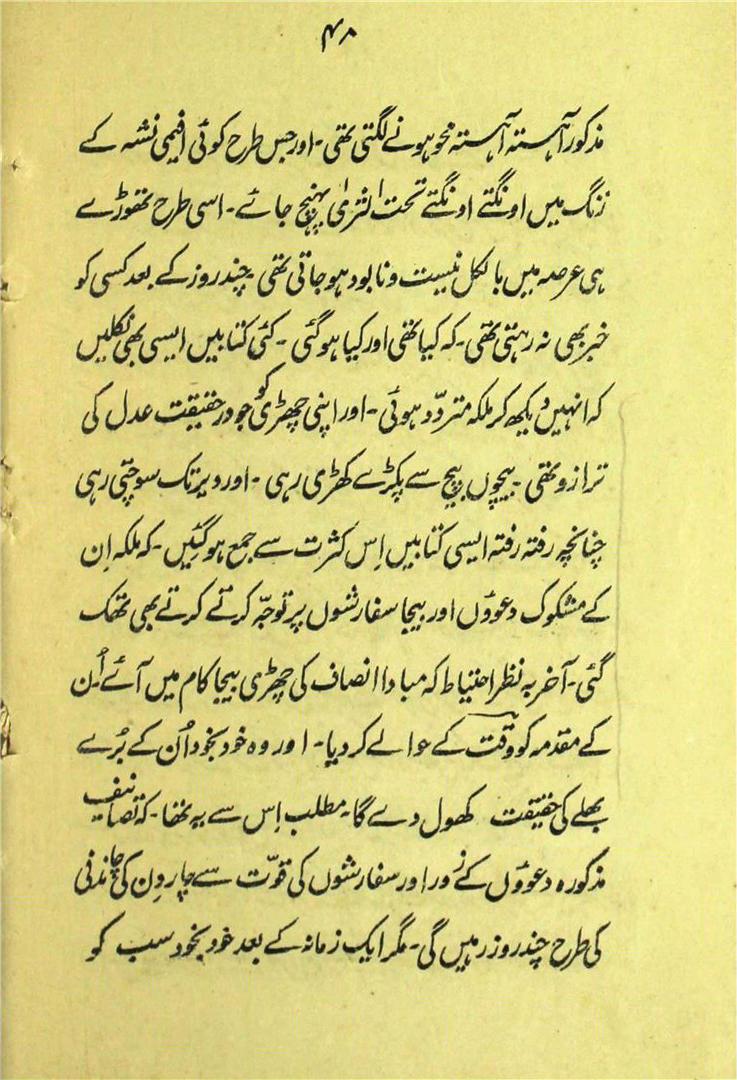 ۴۸
مذکور آہستہ آہستہ محو ہونے لگتی تھی۔ اور جس طرح کوئی افیمی نشہ کے
زنگ میں اونگتے اونگتے تحت الثریٰ پہنچ جائے۔ اسی طرح تھوڑے
ہی عرصہ میں بالکل نیست و نابود ہو جاتی تھی چند روز کے بعد کسی کو
خبر بھی نہ رہتی تھی۔ کہ کیا تھی اور کیا ہو گئی۔ کئی کتابیں ایسی بھی نکلیں
کہ انہیں دیکھ کر ملکہ متردّد ہوئی۔ اور اپنی چھڑی کو جو درحقیقت عدل کی
ترازو تھی۔ بیچوں بیچ سے پکڑے کھڑی رہی۔ اور دیر تک سوچتی رہی
چنانچہ رفتہ رفتہ ایسی کتابیں اِس کثرت سے جمع ہو گئیں۔ کہ ملکہ اِن
کے مشکوک دعووں اور بیجا سفارشوں پر توجّہ کرتے کرتے بھی تھک
گئی۔ آخر بہ نظر احتیاط کہ مبادا انصاف کی چھڑی بیجا کام میں آئے اُن
کے مقدمہ کو وقت کے حوالے کر دیا۔ اور وہ خود بخود اُن کے بُرے
بھلے کی حقیقت کھول دے گا۔ مطلب اِس سے یہ تھا۔ کہ تصانیف
مذکورہ دعووں کے زور اور سفارشوں کی قوّت سے چار دِن کی چاندنی
کی طرح چند روز رہیں گی۔ مگر ایک زمانہ کے بعد خود بخود سب کو